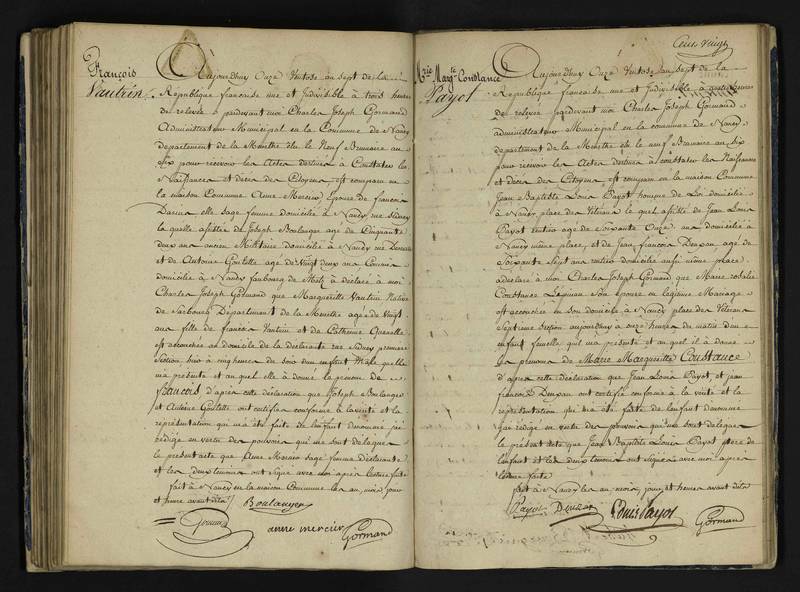 François
Vautrin
Aujourdhuy Onze Ventose an sept de la
Republique francoise une et Indivisible à trois heures
de relevée pardevant moi Charles Joseph Gormand
Administrateur Municipal en la Commune de Nancy
departement de la Meurthe élu le Neuf Brumaire an
Six pour recevoir les Actes destinés à Constater les
Naissances et décès des Citoyens, est comparu en
la maison Commune Anne Mercier Epouse de francois
elle sage femme domiciliée à Nancy rue Sidney
la quelle assistée de Joseph Boulanger age de Cinquante
deux ans ancien Militaire domicilié à Nancy rue
et de Antoine age de Vingt deux ans Commis
domicilié à Nancy faubourg de Metz à déclaré a moi
Charles Joseph Gormand que Margueritte Vautrin Native
de Sarbourg Département de la Meurthe agée de Vingt
ans fille de francois Vautrin et de Catherine
est accouchée au domicile de la déclarante rue Sidney premiere
Section hier à cinq heures du soir d'un enfant Male quelle
ma présenté et auquel elle à donné le prénom de
François, d'après cette déclaration que Joseph Boulanger
et Antoine ont certifié conforme à la vérité et la
représentation qui m'a été faite de l'enfant denommé j'ai
rédigé en vertu des pouvoirs qui me sont delegués
le présent acte que Anne Mercier sage femme déclarante
et les deux temoins ont signé avec moi après lecture faite
fait à Nancy en la maison Commune les an, mois jour
et heure avant dits
Boulanger
anne mercier
Gormand
Cent Vingt
Mrie Margte Constance
Payot
Aujourdhuy Onze Ventose an sept de la
Republique francoise une et Indivisible à quatre heures
de relevée pardevant moi Charles Joseph Gormand
administrateur Municipal en la commune de Nancy
departement de la Meurthe élu le neuf Brumaire an Six
pour recevoir les Actes destinés à constater les Naissances
et décès des Citoyens est comparu en la maison Commune
Jean Baptiste Louis Payot homme de Loi domicilié
à Nancy place des Vétérans le quel assisté de Jean Louis
Payot rentier age de Soixante Onze ans domicilié à
Nancy même place, et de Jean francois age de
Soixante Sept ans rentier domicilié aussi même place
a déclaré à moi Charles Joseph Gormand que Marie rosalie
Constance son épouse en legitime Mariage
est accouchée en son domicile à Nancy place des Vétérans
Septieme Section aujourdhuy a onze heures du matin d'un
enfant femelle qu'il ma présenté et au quel il à donné
les prenoms de Marie Margueritte Constance
d'après cette déclaration que Jean Louis Payot, et jean
francois ont certifié conforme à la vérité et la
représentation qui m'a été faite de l'enfant denommé
j'ai rédigé en vertu des pouvoirs qui me sont delegués
le présent acte que Jean Baptiste Louis Payot pere de
l'enfant et les deux temoins ont signé avec moi après
lecture faite
fait à Nancy les an, mois, jour, et heure avant dits
Payot
Louis Payot
Gormand